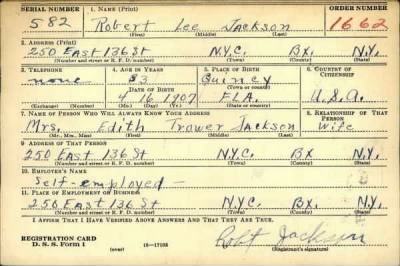 SERIAL NUMBER 1. NAME (Print) ORDER NUMBER
582 Robert Lee Jackson 1662
(First) (Middle) (Last)
2. ADDRESS (Print)
250 East 136 St N.Y.C. Bx. N.Y.
(Number and street or R. F. D. number) (Town) (County) (State)
3. TELEPHONE 4. AGE IN YEARS 5. PLACE OF BIRTH 6. COUNTRY OF CITIZENSHIP
none 33 Quincy
DATE OF BIRTH (Town or county)
4 16 1907 FLA. U.S.A.
(Exchange) (Number) (Mo.) (Day) (Yr.) (State or country)
7. NAME OF PERSON WHO WILL ALWAYS KNOW YOUR ADDRESS 8. RELATIONSHIP OF THAT PERSON
Mrs. Edith Trower Jackson Wife
(Mr., Mrs., Miss) (First) (Middle) (Last)
9. ADDRESS OF THAT PERSON
250 East 136 St N.Y.C. Bx. N.Y.
(Number and street or R. F. D. number) (Town) (County) (State)
10. EMPLOYER'S NAME
Self-employed -
11. PLACE OF EMPLOYMENT OR BUSINESS
250 East 136 St N.Y.C. Bx. N.Y.
(Number and street or R. F. D. number) (Town) (County) (State)
I AFFIRM THAT I HAVE VERIFIED ABOVE ANSWERS AND THAT THEY ARE TRUE.
REGISTRATION CARD
D. S. S. Form 1 (over) 16-17105 Robt Jackson
(Registrant's signature)